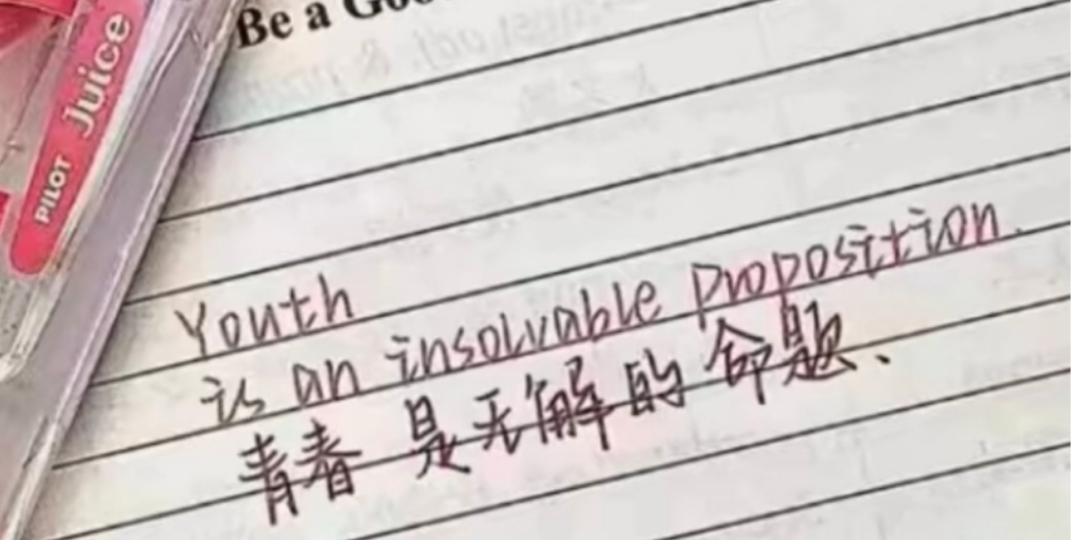 Be a
PILOT Juice
Youth
is an insolvable proposition.
青春是无解的命题、